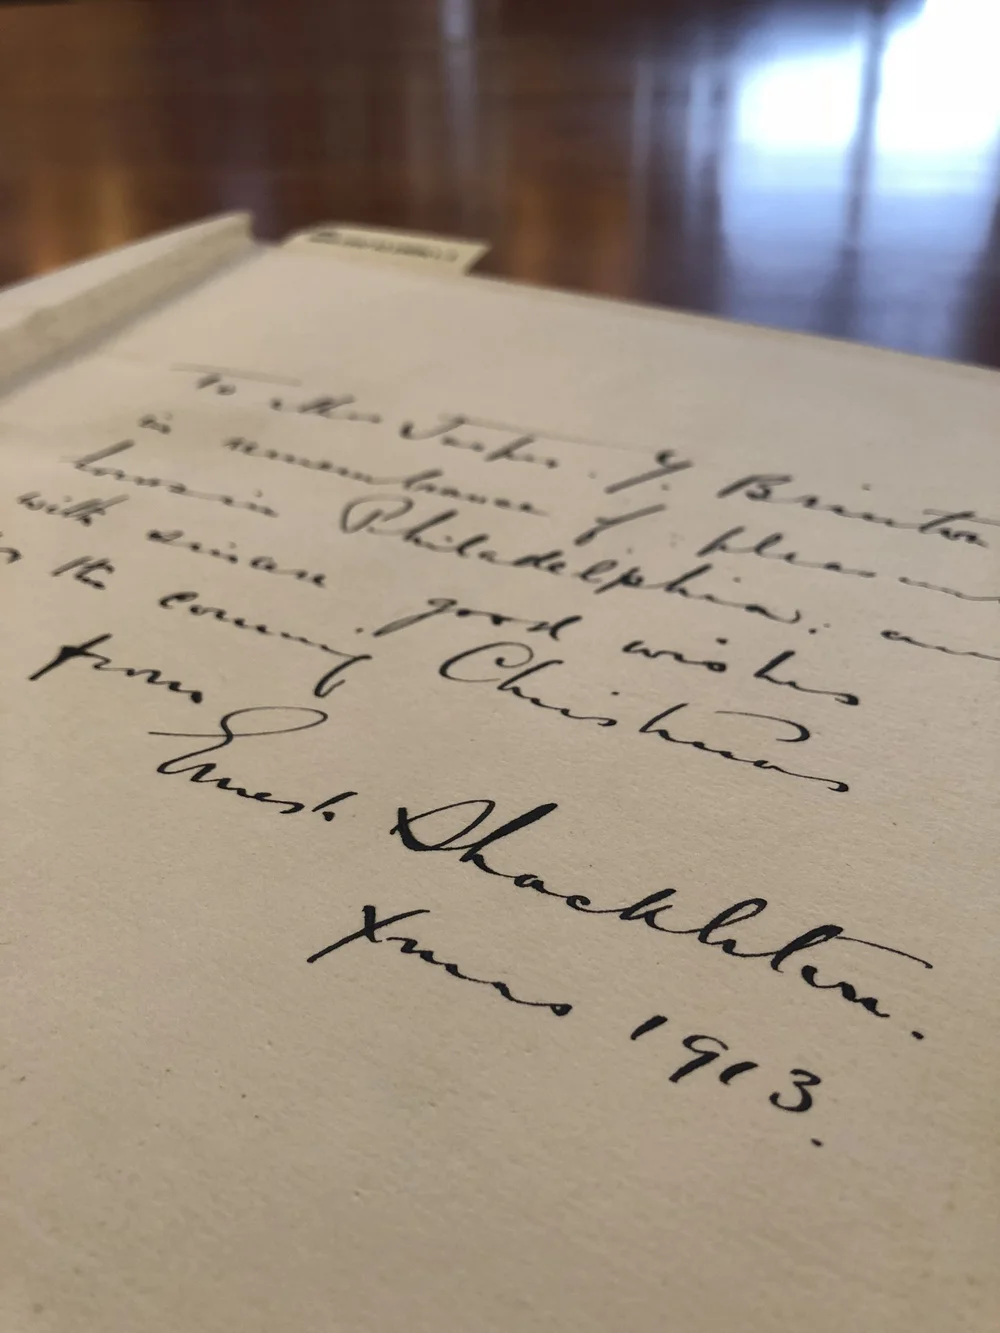 To Mrs Jasper Y. Brinton
in remembrance of pleasant
hours in Philadelphia. and
with sincere good wishes
the coming Christmas
from
Ernest Shackleton.
Xmas 1913.